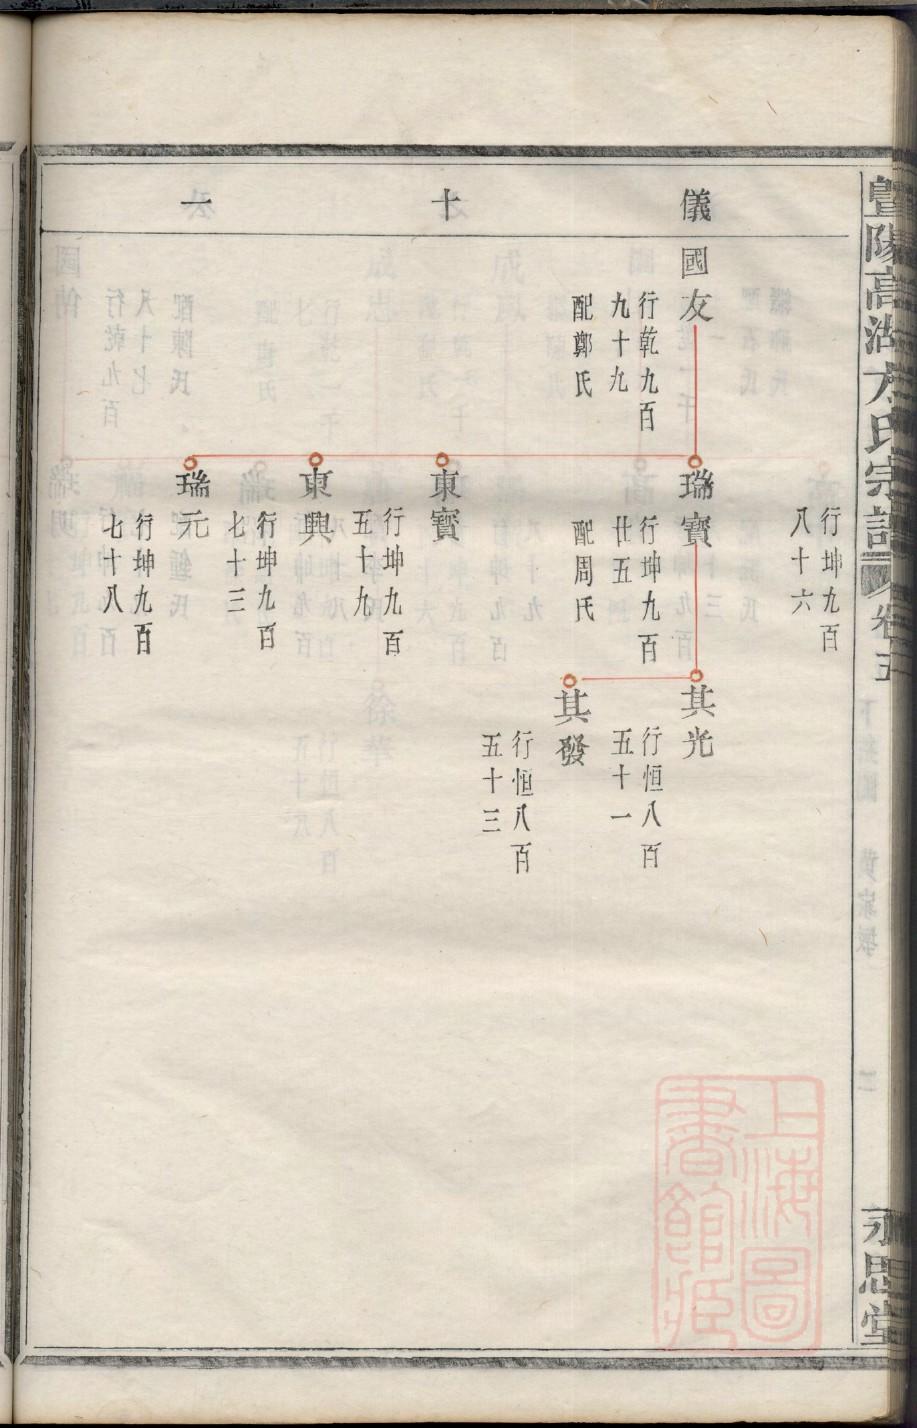 暨陽高湖方氏宗譜
卷五
永思堂
儀十一
行坤九百
八十六
國友
行乾九百
九十九
配鄭氏
瑞寶
行坤九百
廿五
配周氏
其光
行恒八百
五十一
其發
行恒八百
五十三
東寶
行坤九百
五十九
東興
行坤九百
七十三
瑞元
行坤九百
七十八
上海圖
書館藏